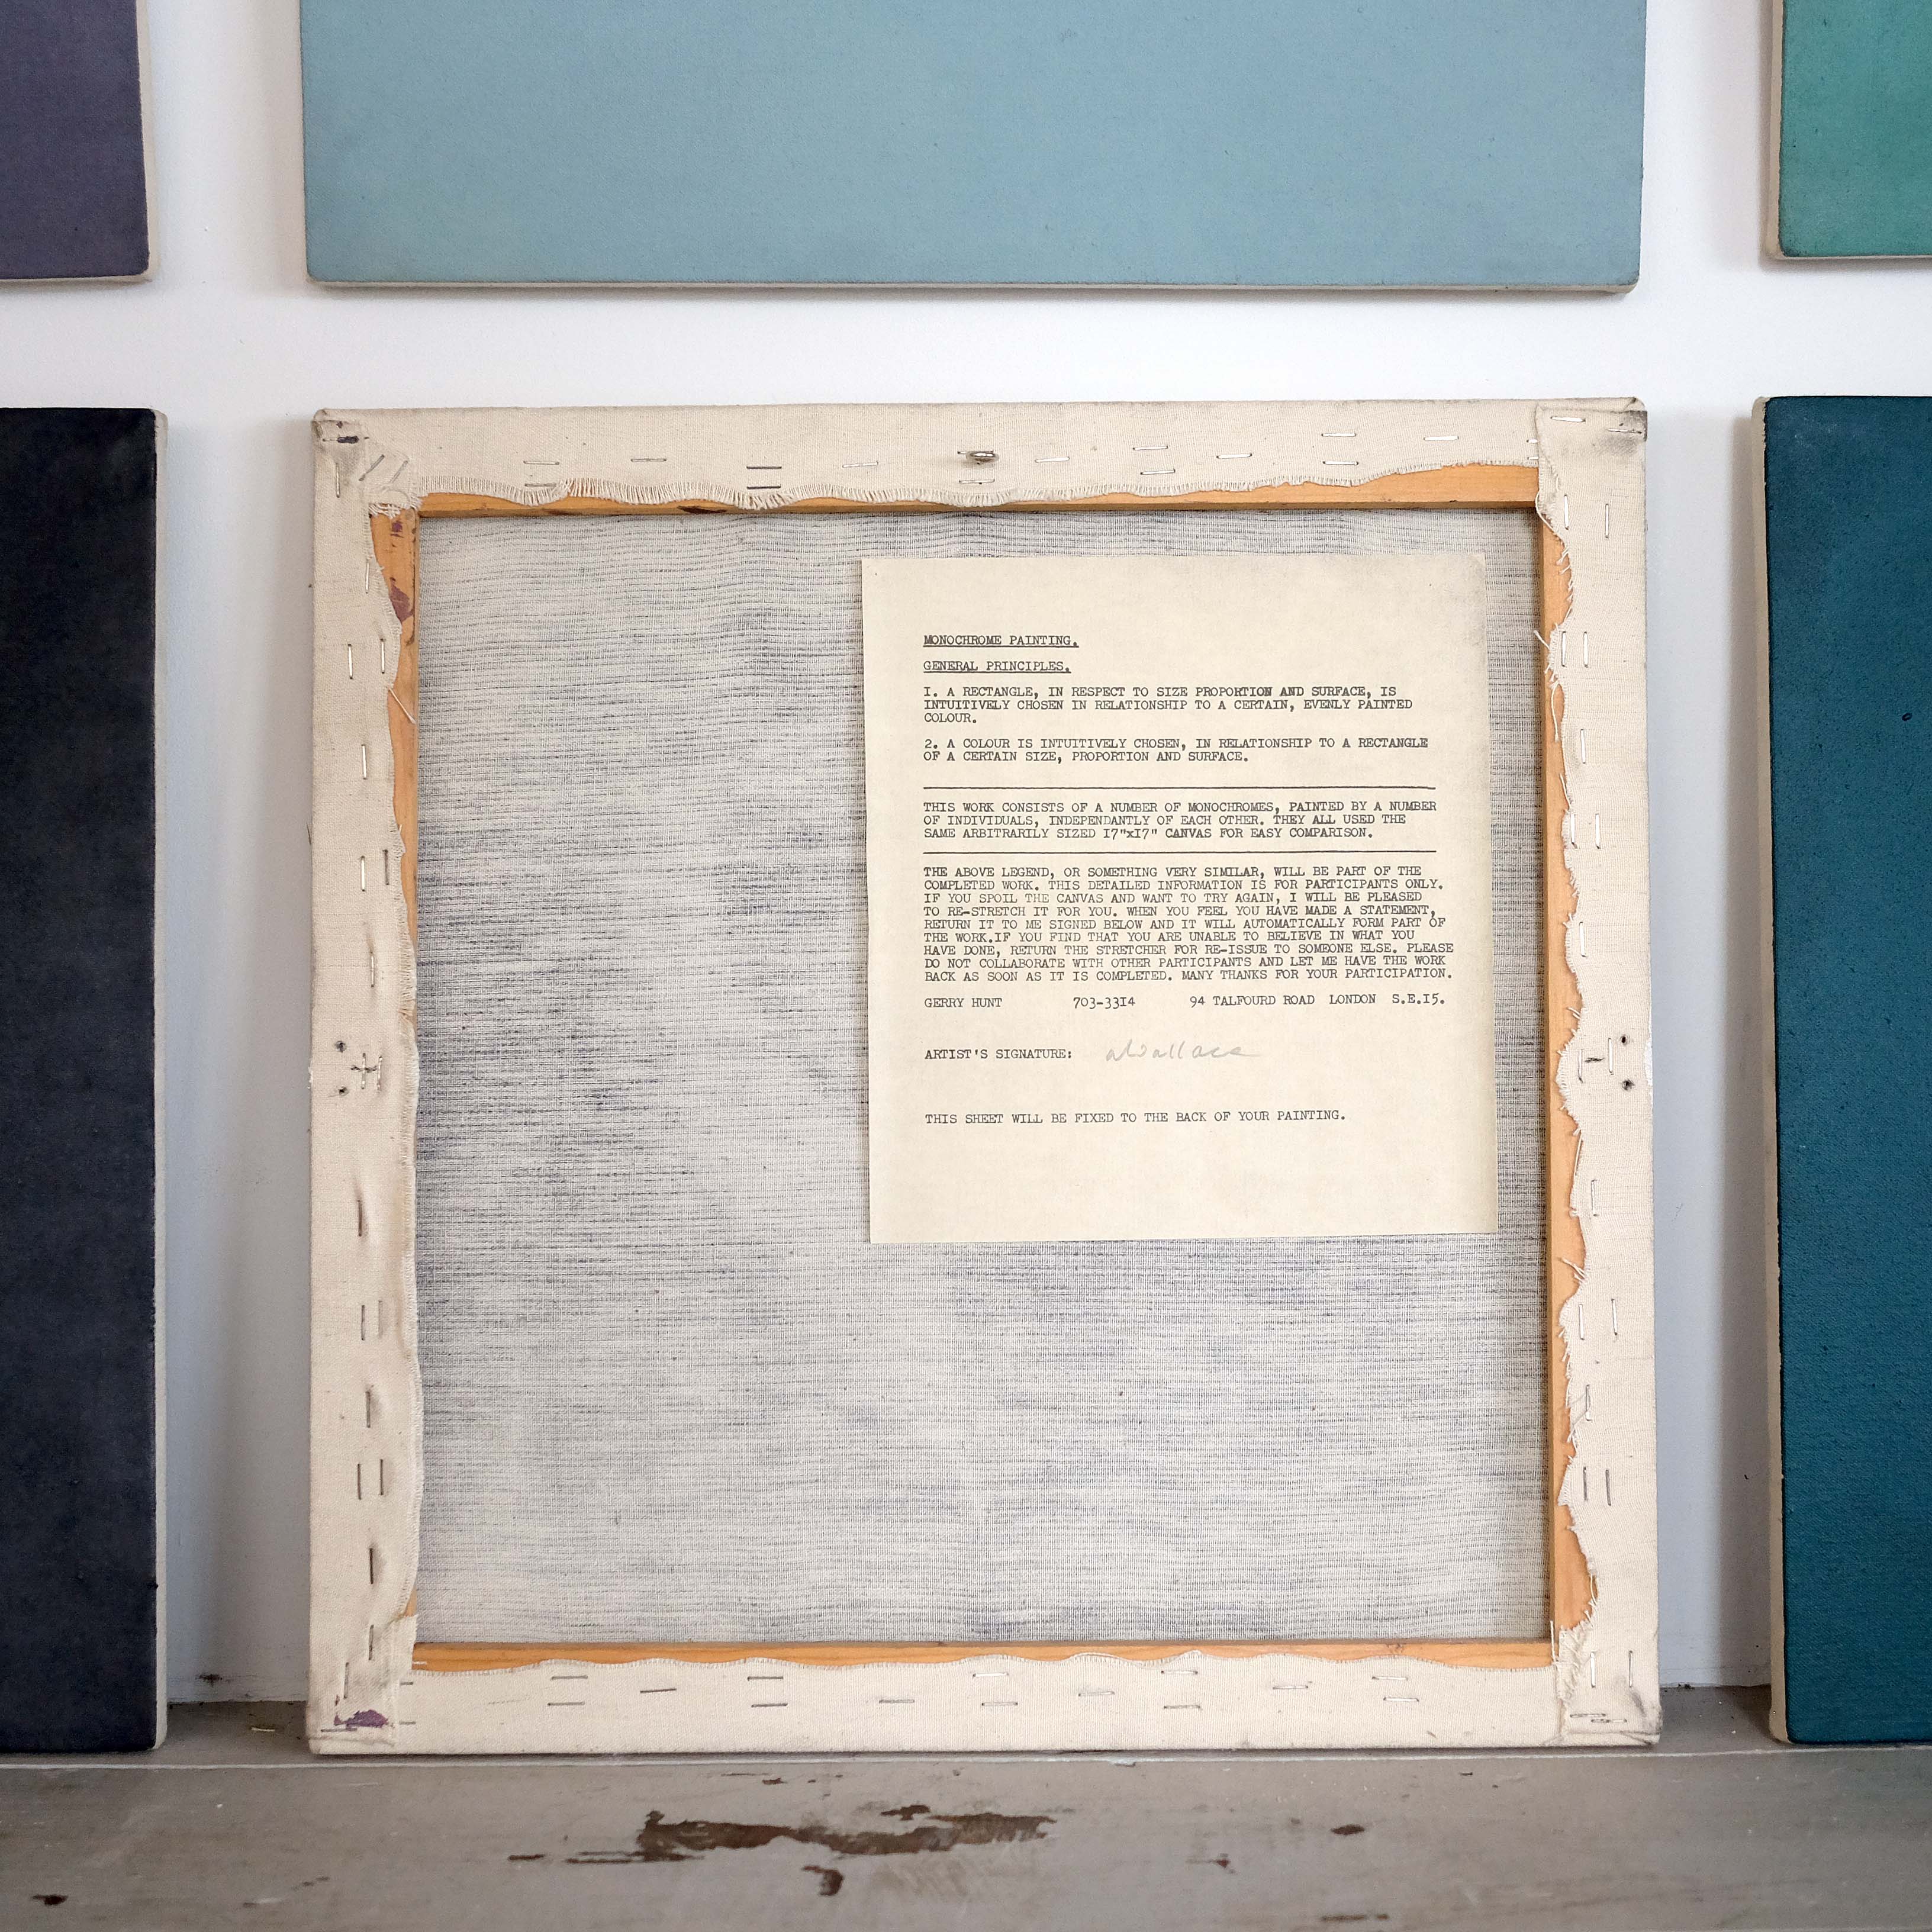 MONOCHROME PAINTING.
GENERAL PRINCIPLES.
I. A RECTANGLE, IN RESPECT TO SIZE PROPORTION AND SURFACE, IS
INTUITIVELY CHOSEN IN RELATIONSHIP TO A CERTAIN, EVENLY PAINTED
COLOUR.
2. A COLOUR IS INTUITIVELY CHOSEN, IN RELATIONSHIP TO A RECTANGLE
OF A CERTAIN SIZE, PROPORTION AND SURFACE.
THIS WORK CONSISTS OF A NUMBER OF MONOCHROMES, PAINTED BY A NUMBER
OF INDIVIDUALS, INDEPENDANTLY OF EACH OTHER. THEY ALL USED THE
SAME ARBITRARILY SIZED I7"xI7" CANVAS FOR EASY COMPARISON.
THE ABOVE LEGEND, OR SOMETHING VERY SIMILAR, WILL BE PART OF THE
COMPLETED WORK. THIS DETAILED INFORMATION IS FOR PARTICIPANTS ONLY.
IF YOU SPOIL THE CANVAS AND WANT TO TRY AGAIN, I WILL BE PLEASED
TO RE-STRETCH IT FOR YOU. WHEN YOU FEEL YOU HAVE MADE A STATEMENT,
RETURN IT TO ME SIGNED BELOW AND IT WILL AUTOMATICALLY FORM PART OF
THE WORK.IF YOU FIND THAT YOU ARE UNABLE TO BELIEVE IN WHAT YOU
HAVE DONE, RETURN THE STRETCHER FOR RE-ISSUE TO SOMEONE ELSE. PLEASE
DO NOT COLLABORATE WITH OTHER PARTICIPANTS AND LET ME HAVE THE WORK
BACK AS SOON AS IT IS COMPLETED. MANY THANKS FOR YOUR PARTICIPATION.
GERRY HUNT 703-33I4 94 TALFOURD ROAD LONDON S.E.I5.
ARTIST'S SIGNATURE: aWallace
THIS SHEET WILL BE FIXED TO THE BACK OF YOUR PAINTING.